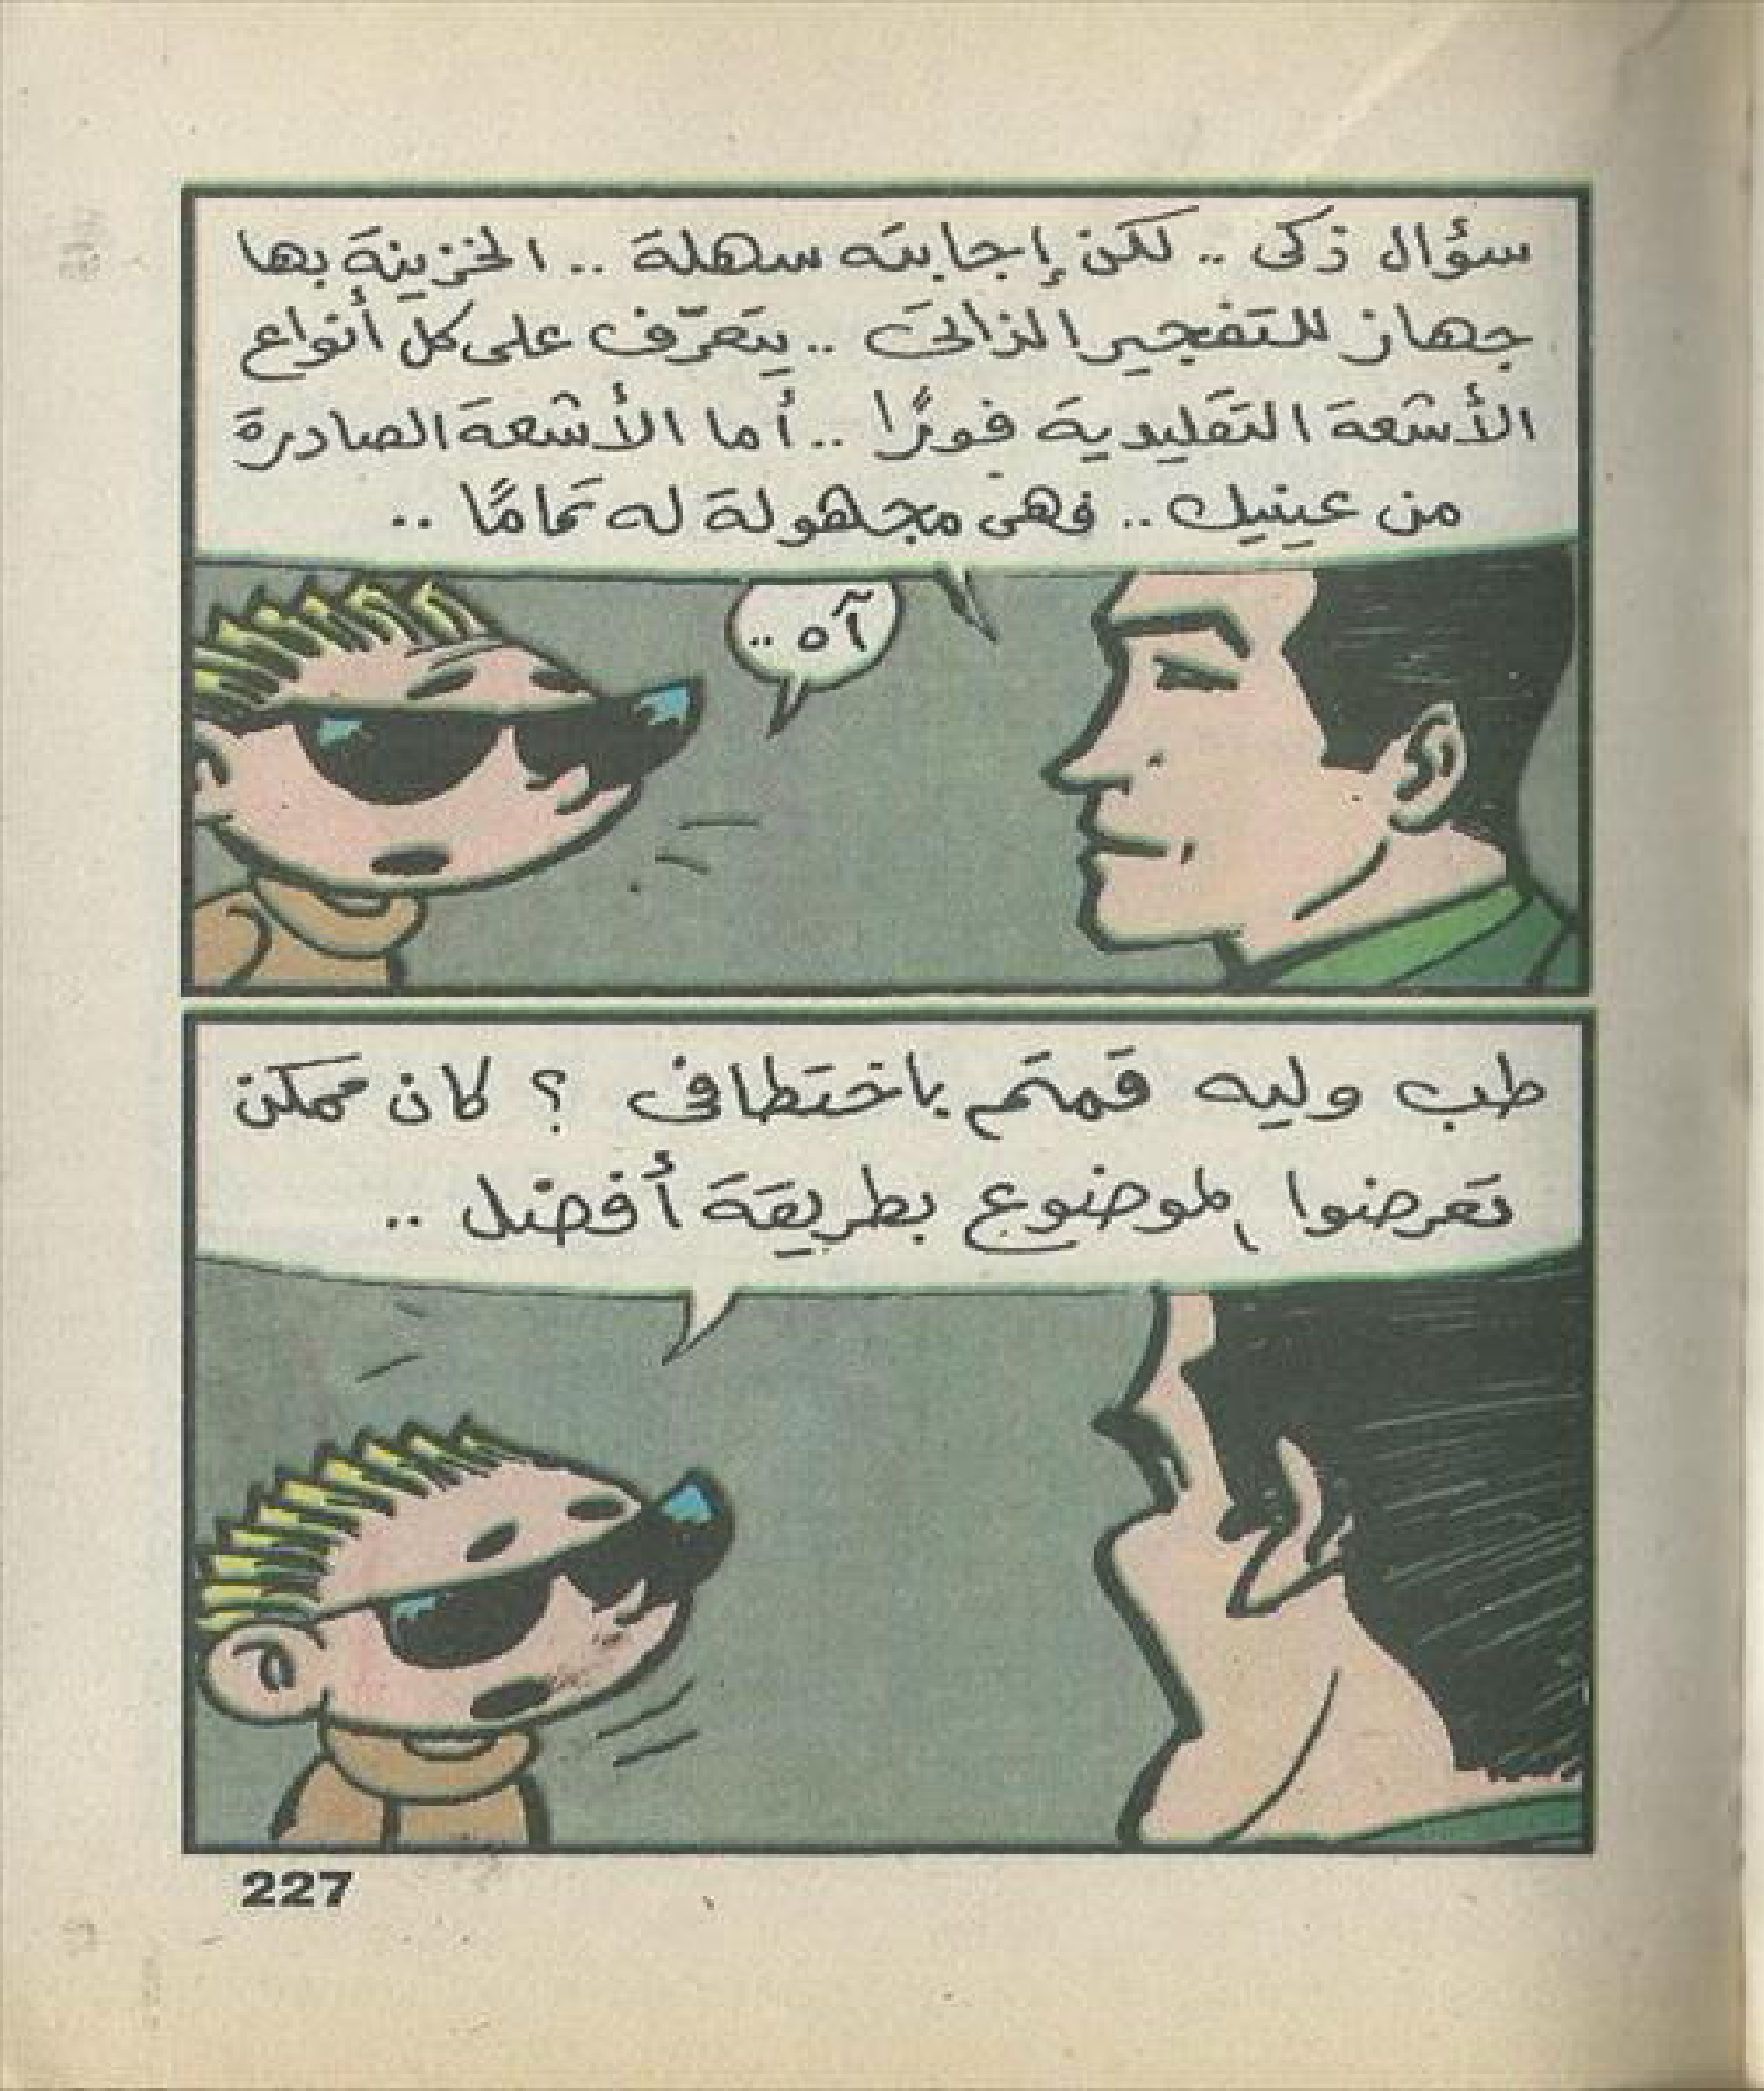 سؤال ذكى .. لكن إجابته سهلة .. الخزينة بها
جهاز للتفجير الذاتى .. يتعرّف على كل أنواع
الأشعة التقليدية فورًا .. أما الأشعة الصادرة
من عينيك .. فهى مجهولة له تمامًا ..
آه ..
طب وليه قمتم باختطافى ؟ كان ممكن
تعرضوا الموضوع بطريقة أفضل ..
227